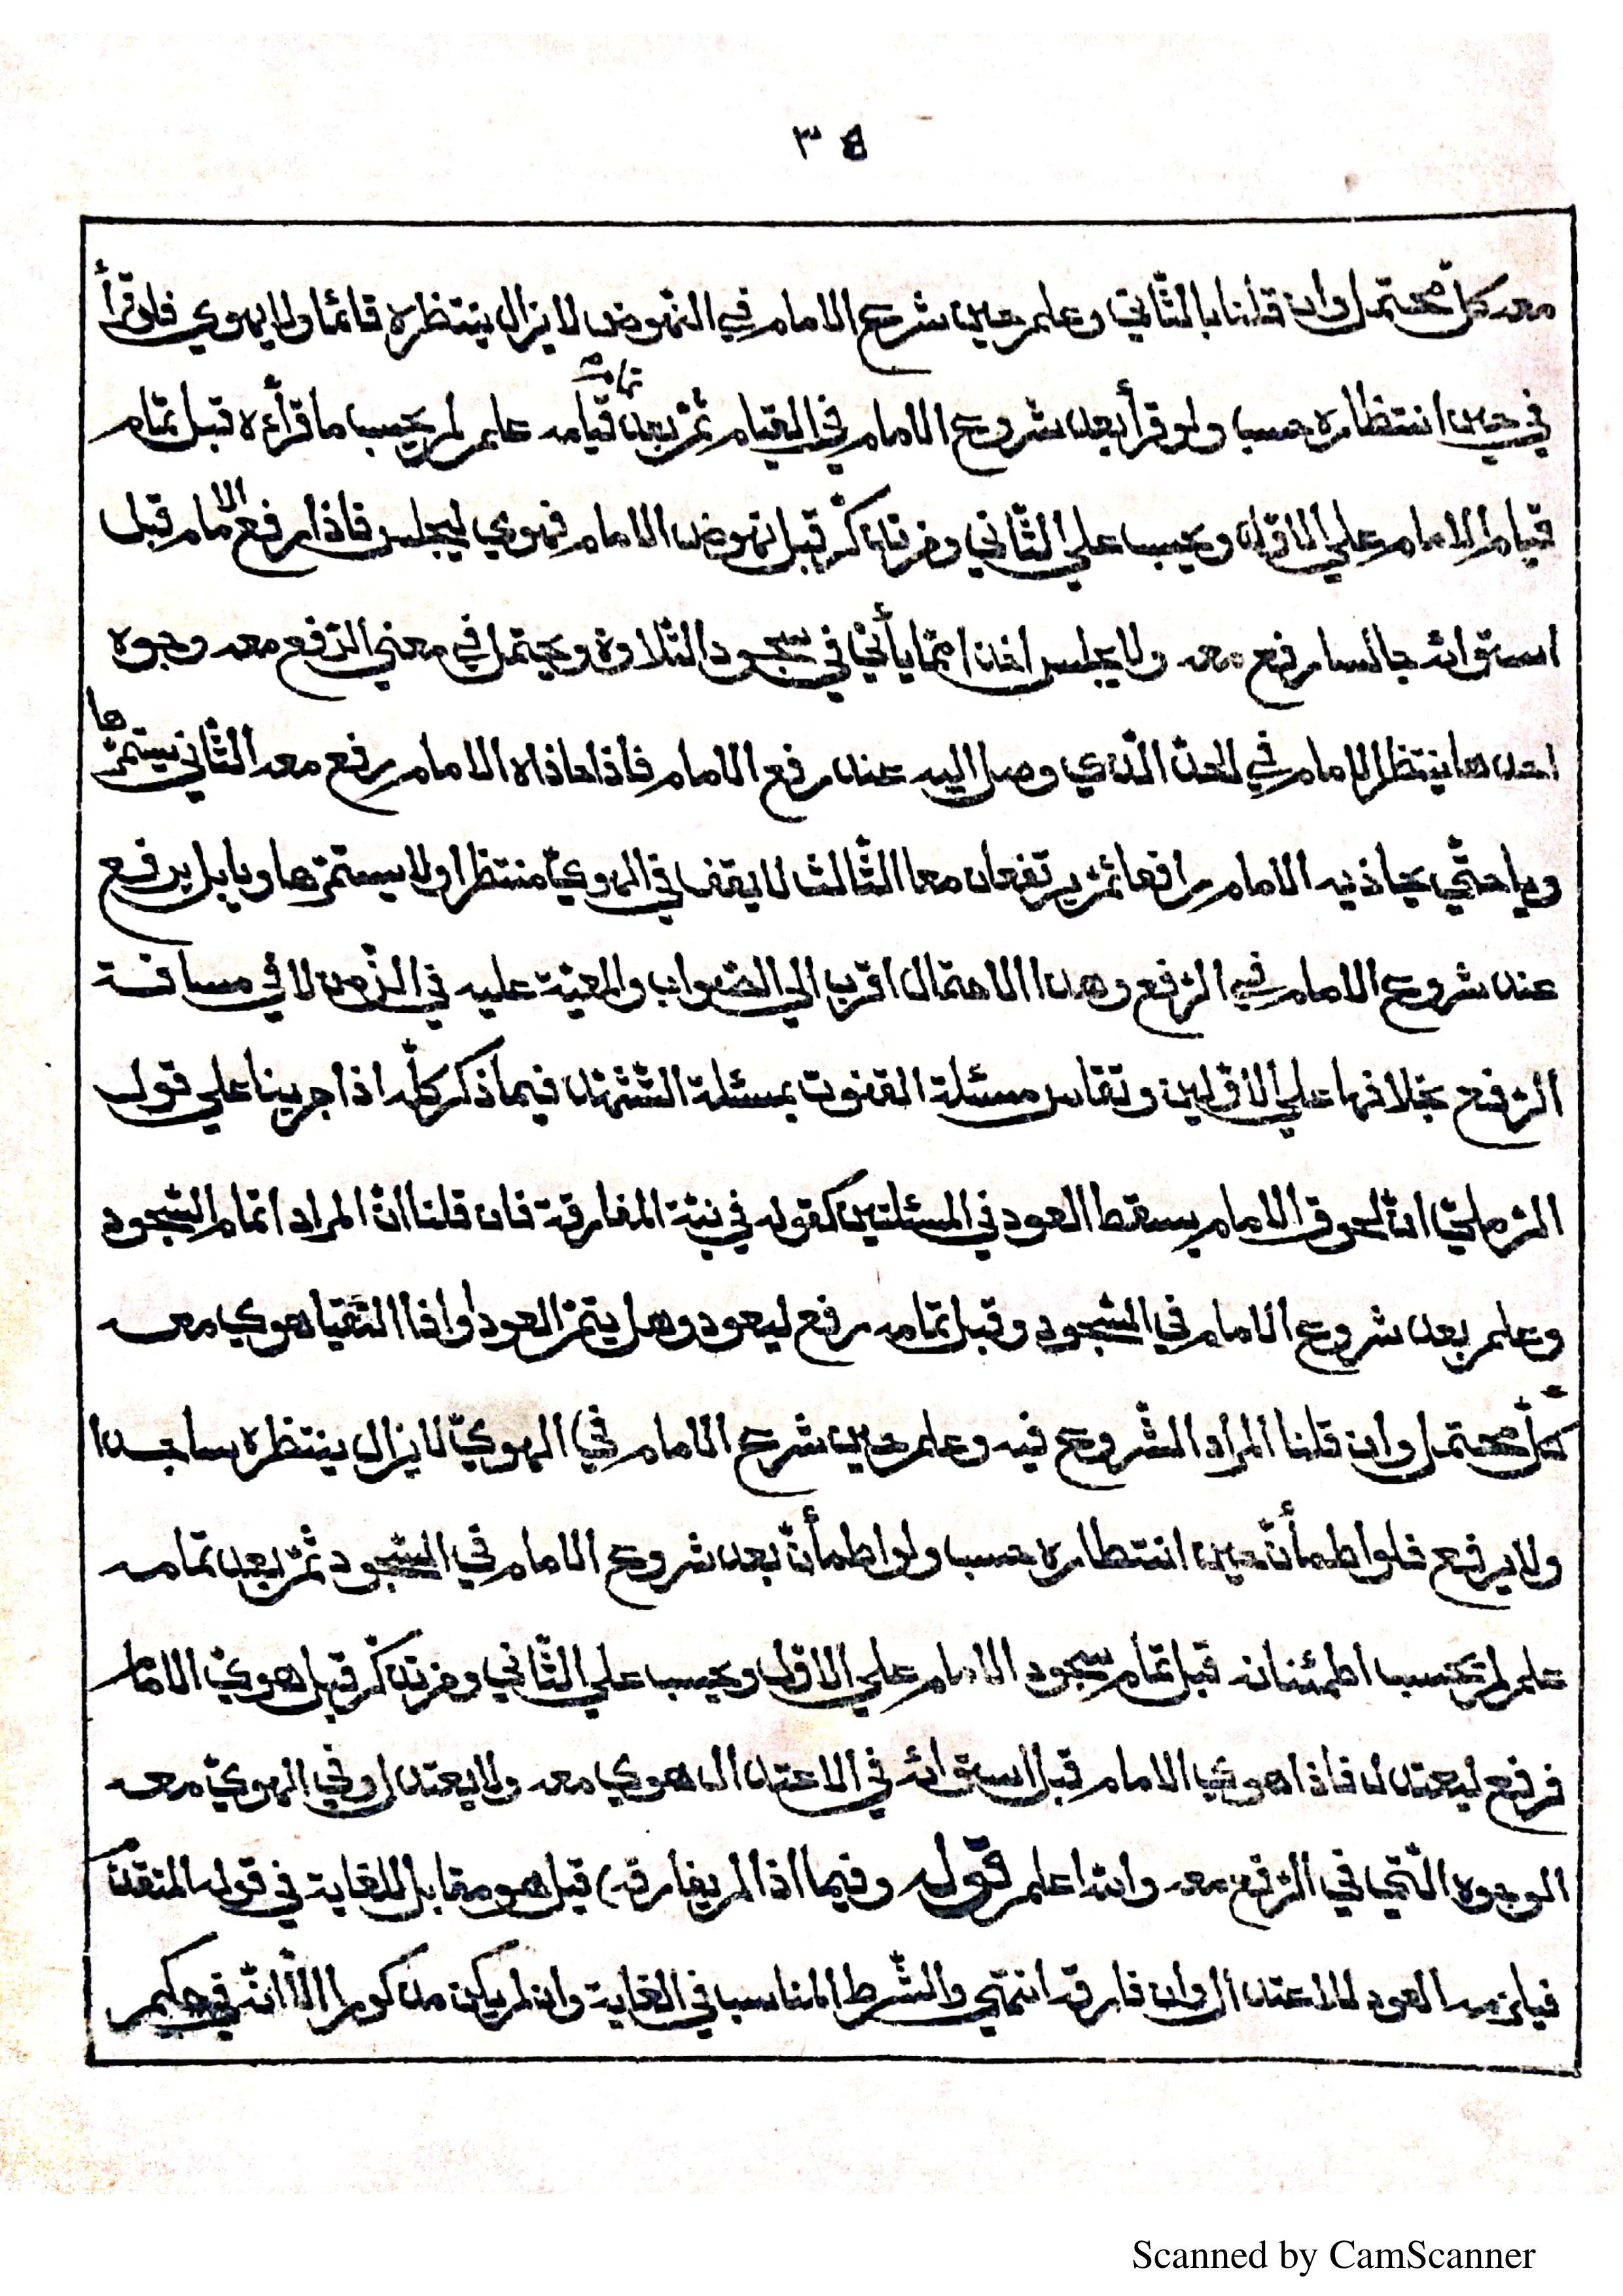 ٣٤
معه كلّ محتمل وان قلنا بالثّاني وعلم حين شرع الامام في النّهوض لا يزال ينتظره قائما ولا يهوي فلو قرأ
في حين انتظاره حسب ولو قرأ بعد شروع الامام في القيام ثمّ بعد تمام قيامه علم لم يحسب ما قرأه قبل تمام
قيام الامام علي الاوّل ويحسب علي الثّاني وفرّ تذكّر قبل نهوض الامام فهوي ليجلس فاذا رفع الامام قبل
استوائه جالسا رفع معه ولا يجلس اخذا ممّا يأتي في سجود التّلاوة ويحتمل في معني الرّفع معه وجوه
احدها ينتظر الامام في الحدّ الّذي وصل اليه عند رفع الامام فاذا حاذاه الامام رفع معه الثّاني يستمرّ ها
ويا حتّي يحاذيه الامام رافعا ثمّ يرتفعان معا الثّالث لا يقف في الهويّ منتظرا ولا يستمرّ هاويا بل يرفع
عند شروع الامام في الرّفع وهذا الاحتمال اقرب الي الصّواب والمعيّة عليه في الزّمن لا في مسافة
الرّفع بخلافها علي الاوّلين وتقاس مسئلة القنوت بمسئلة التّشهّد فيما ذكر كلّه اذا جرينا علي قول
الرّمليّ انّ لحوق الامام يسقط العود في المسئلتين كقوله في نيّة المفارقة فان قلنا انّ المراد اتمام السّجود
وعلم بعد شروع الامام في السّجود وقبل تمامه رفع ليعود وهل يتمّ العود او اذا التقيا هوي معه
كلّ محتمل وان قلنا المراد الشّروع فيه وعلم حين شرع الامام في الهويّ لا يزال ينتظره ساجدا
ولا يرفع فلو اطمأنّ حين انتظاره حسب ولو اطمأنّ بعد شروع الامام في السّجود ثمّ بعد تمامه
علم لم يحسب اطمئنانه قبل تمام سجود الامام علي الاوّل ويحسب علي الثّاني وفرّ تذكّر قبل هويّ الامام
فرفع ليعتدل فاذا هوي الامام قبل استوائه في الاعتدال هوي معه ولا يعتدل وفي الهويّ معه
الوجوه الّتي في الرّفع معه والله اعلم قوله وفيما اذا لم يفارقه) قيل هو مقابل للغاية في قوله المتقدّم
فيلزمه العود للاعتدال وان فارقه انتهي والشّرط المناسب في الغاية وان لم يكن مذكورا الّا انّه في حكم
Scanned by CamScanner